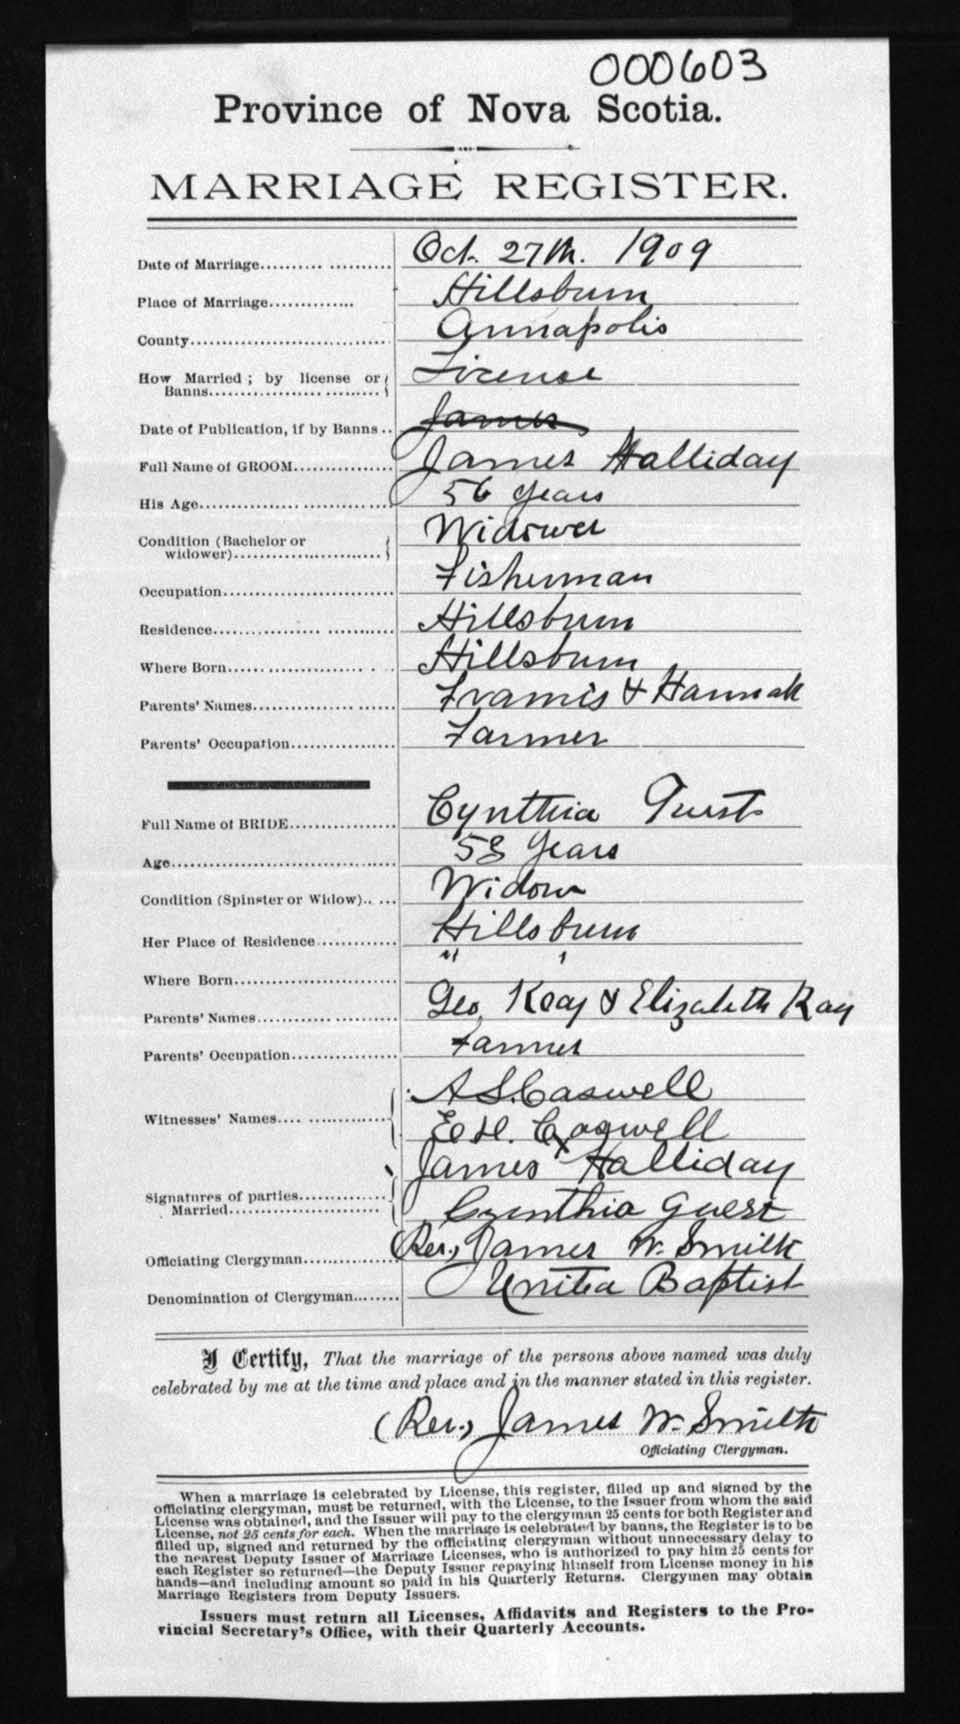 000603
Province of Nova Scotia.
MARRIAGE REGISTER.
Date of Marriage.................... Oct. 27th. 1909
Place of Marriage.............. Hillsburn
County................................. Annapolis
How Married ; by license or Banns........................... License
Date of Publication, if by Banns .. James
Full Name of GROOM................ James Halliday
His Age............................... 56 years
Condition (Bachelor or widower)........................ Widower
Occupation............................ Fisherman
Residence............................ Hillsburn
Where Born.......................... Hillsburn
Parents' Names...................... Francis & Hannah
Parents' Occupation................ Farmer
Full Name of BRIDE................ Cynthia Guest
Age.................................... 53 years
Condition (Spinster or Widow)..... Widow
Her Place of Residence............. Hillsburn
Where Born.......................... " "
Parents' Names...................... Geo. Ray & Elizabeth Ray
Parents' Occupation................ Farmer
Witnesses' Names.................. A S. Caswell
E. H. Caswell
Signatures of parties Married......................... James Halliday
Cynthia Guest
Officiating Clergyman.............. (Rev.) James W. Smith
Denomination of Clergyman....... United Baptist
I Certify, That the marriage of the persons above named was duly
celebrated by me at the time and place and in the manner stated in this register.
(Rev.) James W. Smith
Officiating Clergyman.
When a marriage is celebrated by License, this register, filled up and signed by the
officiating clergyman, must be returned, with the License, to the Issuer from whom the said
License was obtained, and the Issuer will pay to the clergyman 25 cents for both Register and
License, not 25 cents for each. When the marriage is celebrated by banns, the Register is to be
filled up, signed and returned by the officiating clergyman without unnecessary delay to
the nearest Deputy Issuer of Marriage Licenses, who is authorized to pay him 25 cents for
each Register so returned—the Deputy Issuer repaying himself from License money in his
hands—and including amount so paid in his Quarterly Returns. Clergymen may obtain
Marriage Registers from Deputy Issuers.
Issuers must return all Licenses, Affidavits and Registers to the Pro-
vincial Secretary's Office, with their Quarterly Accounts.